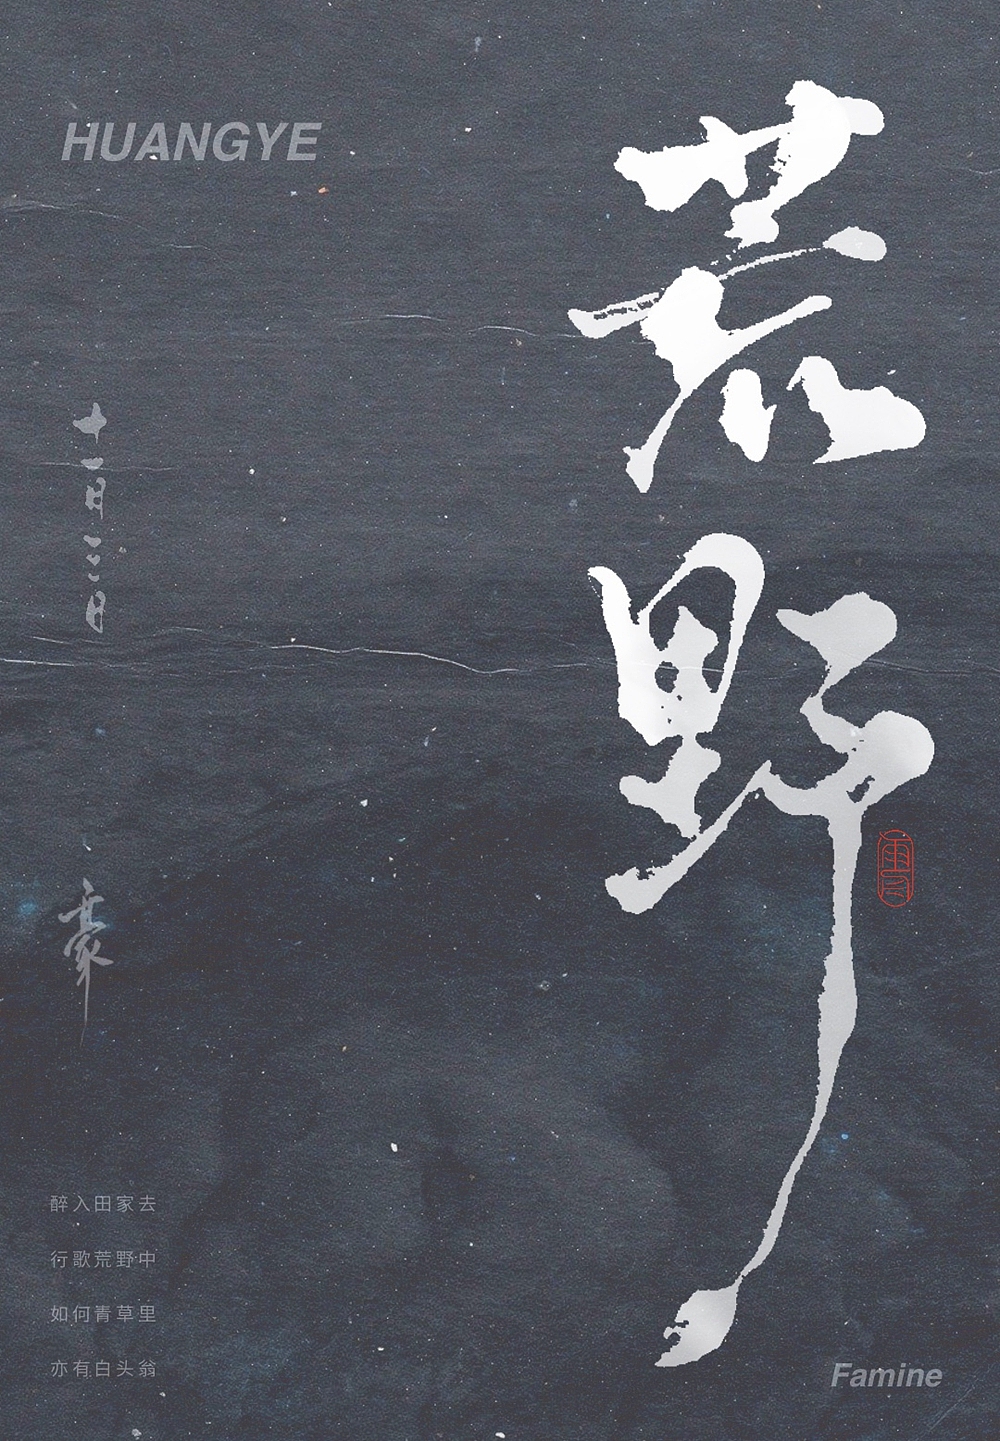 HUANGYE
荒野
十一月二三日
豪
醉入田家去
行歌荒野中
如何青草里
亦有白头翁
Famine